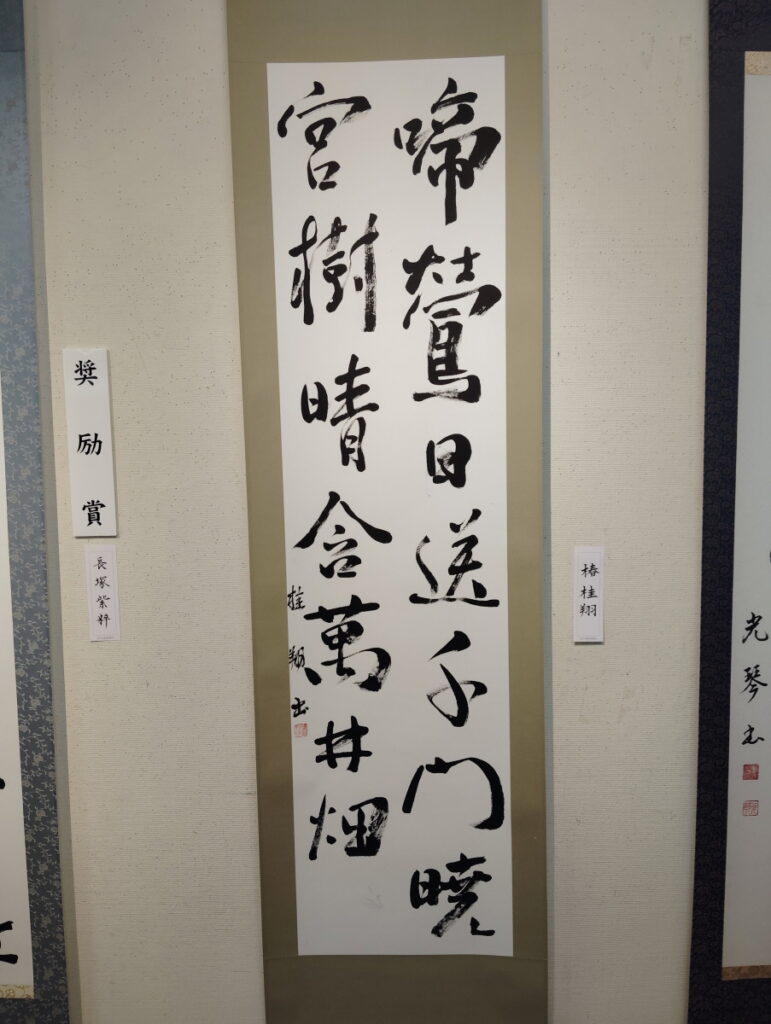 光琴書
椿桂翔
啼鶯日送千門暁
宮樹晴含萬井烟
桂翔書
奨励賞
長塚紫粹